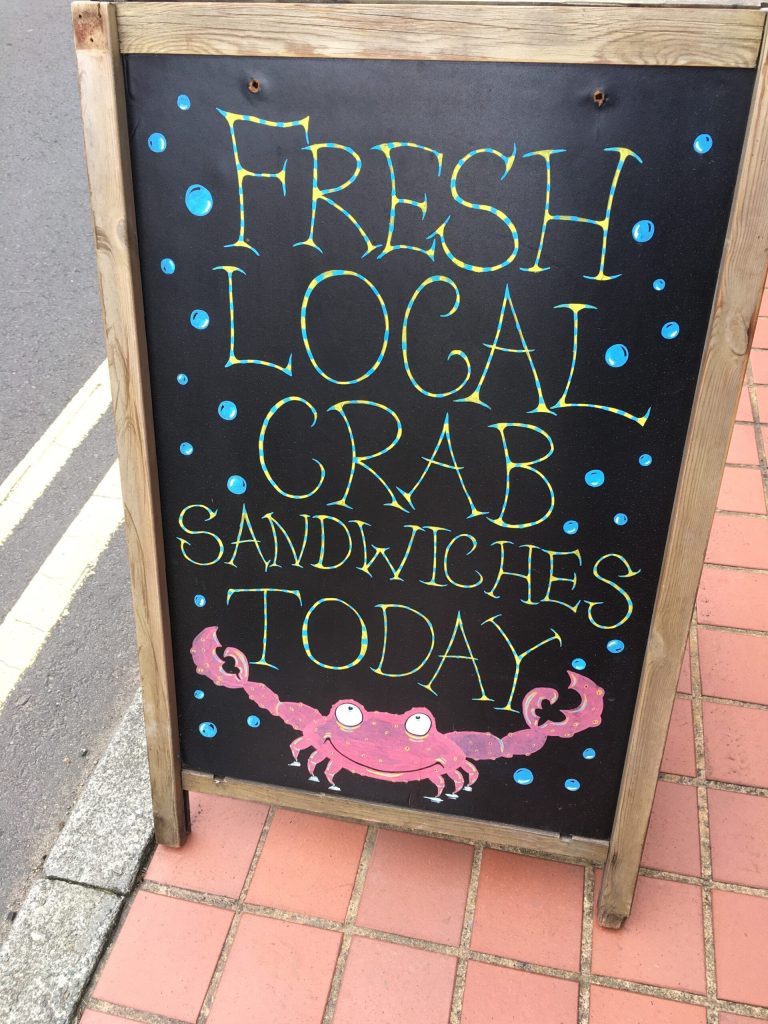 FRESH
LOCAL
CRAB
SANDWICHES
TODAY